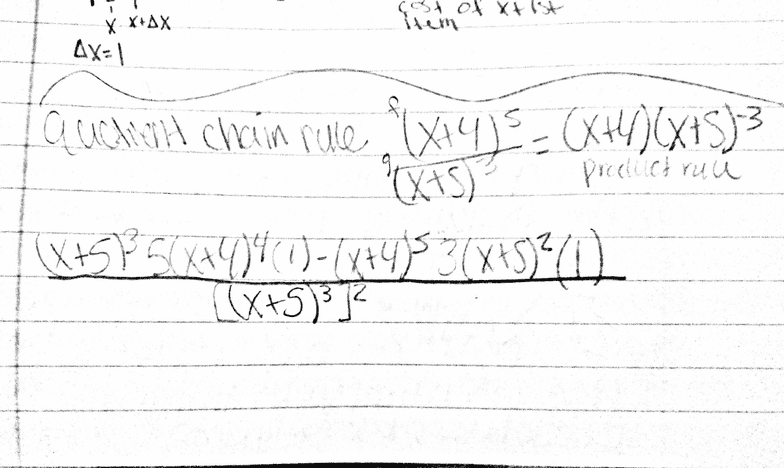 x x+Δx
cost of x+1st
item
Δx=1
quotient chain rule f (x+4)^5 / g (x+5)^-3 = (x+4)(x+5)^-3
product rule
(x+5)^3 5(x+4)^4 (1) - (x+4)^5 3(x+5)^2 (1)
[(x+5)^3]^2